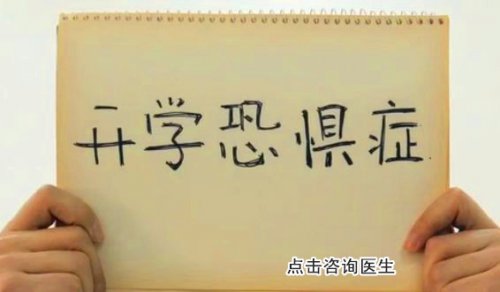 开学恐惧症
点击咨询医生